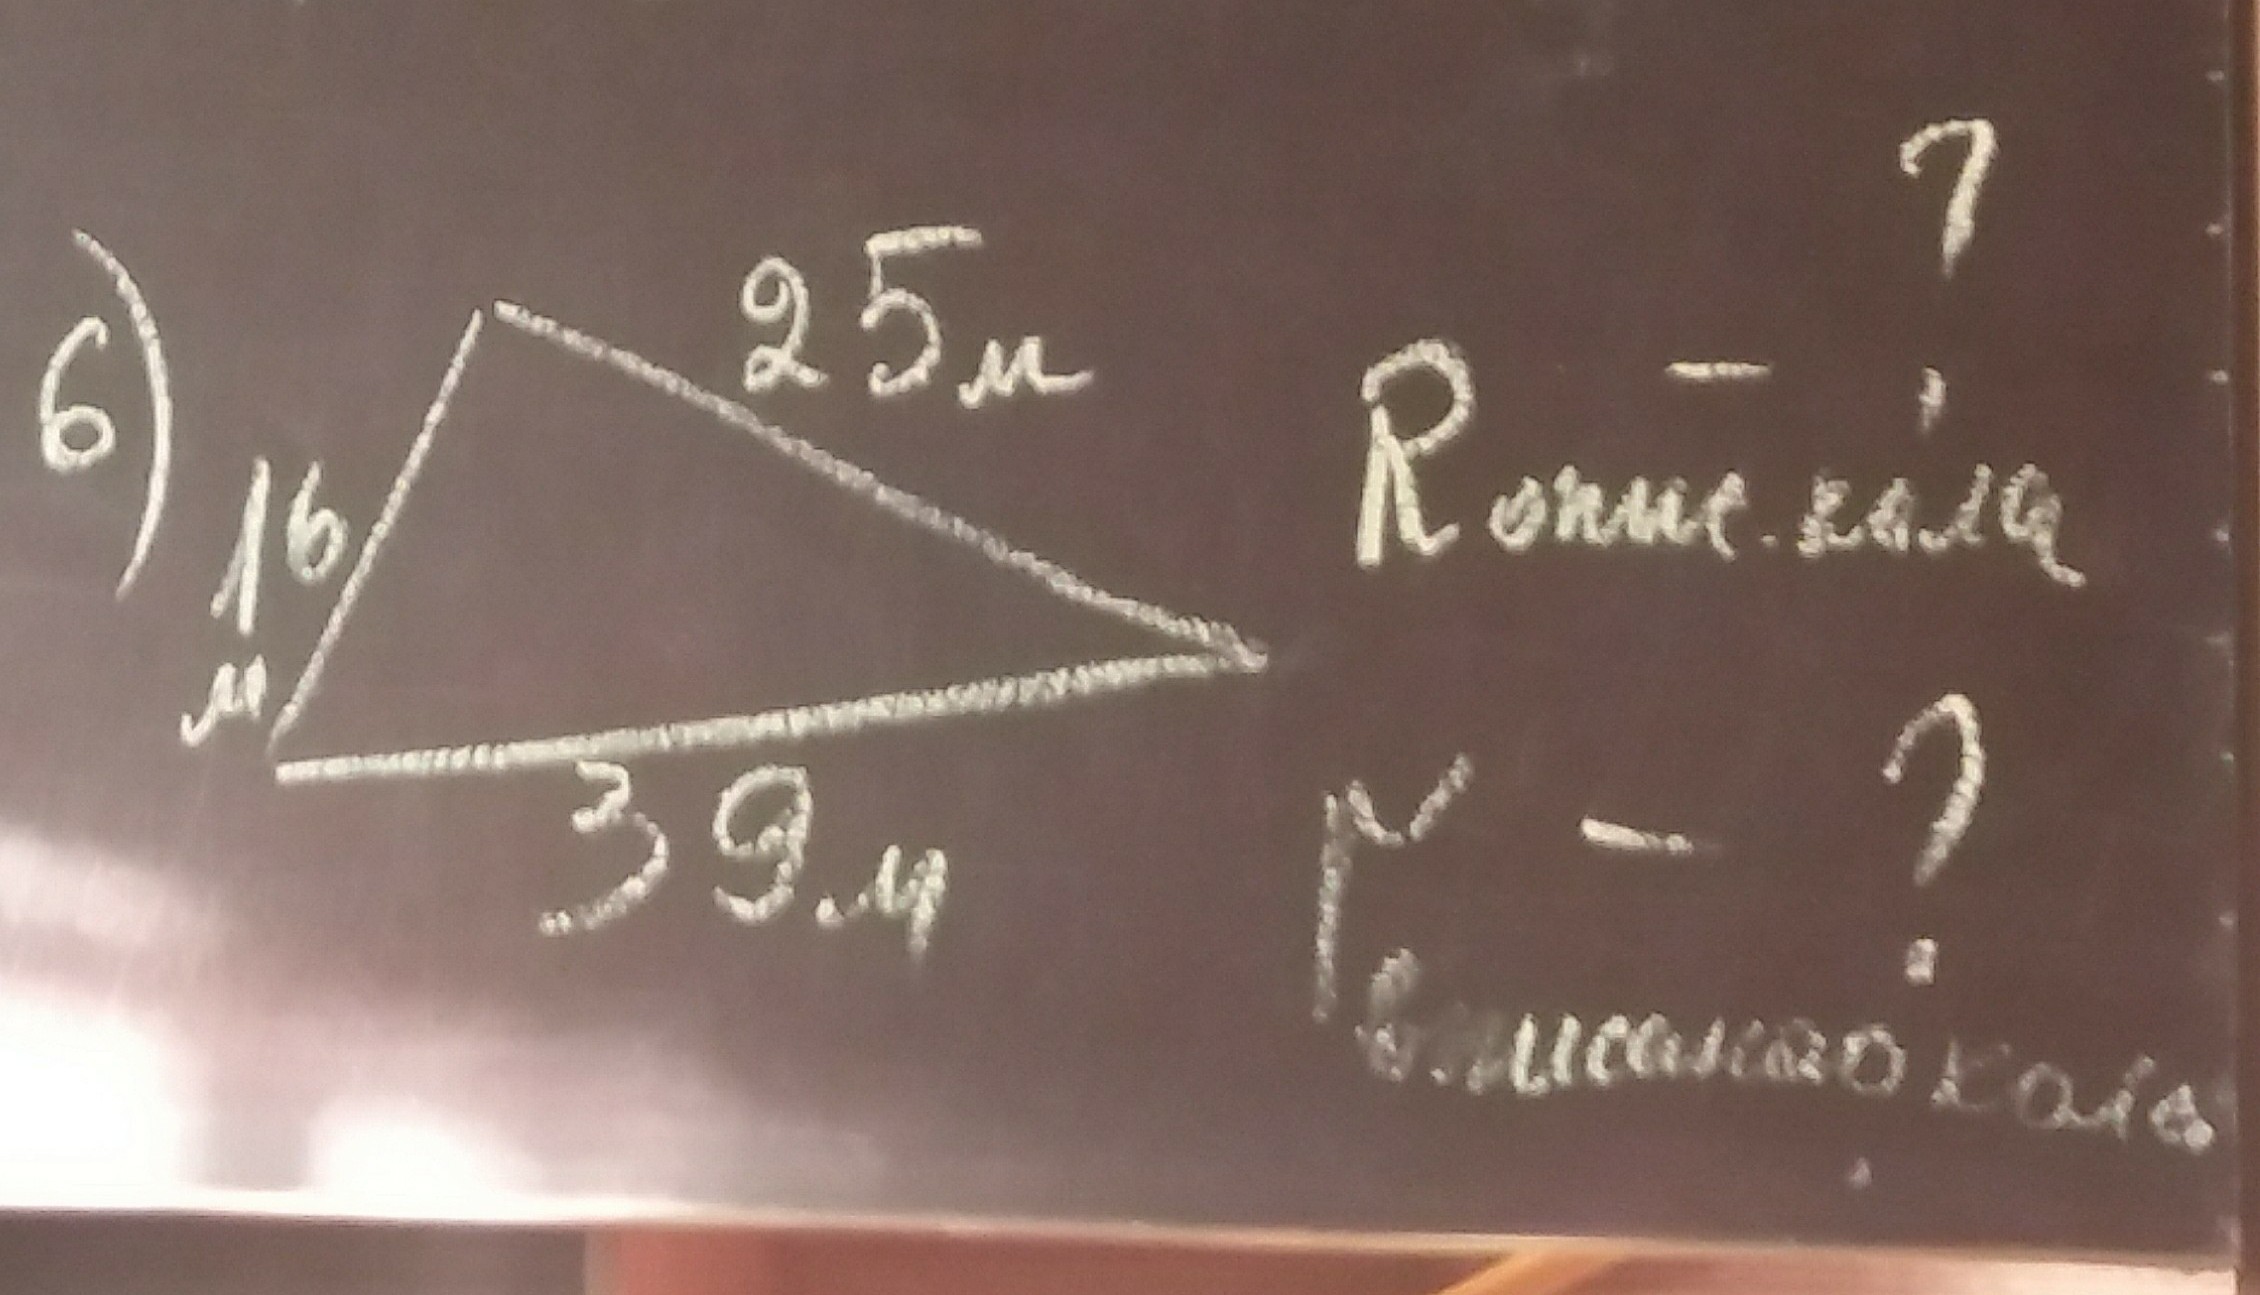 6)
25м
16
м
39м
R - ?
опис. кола
r - ?
вписаного кола